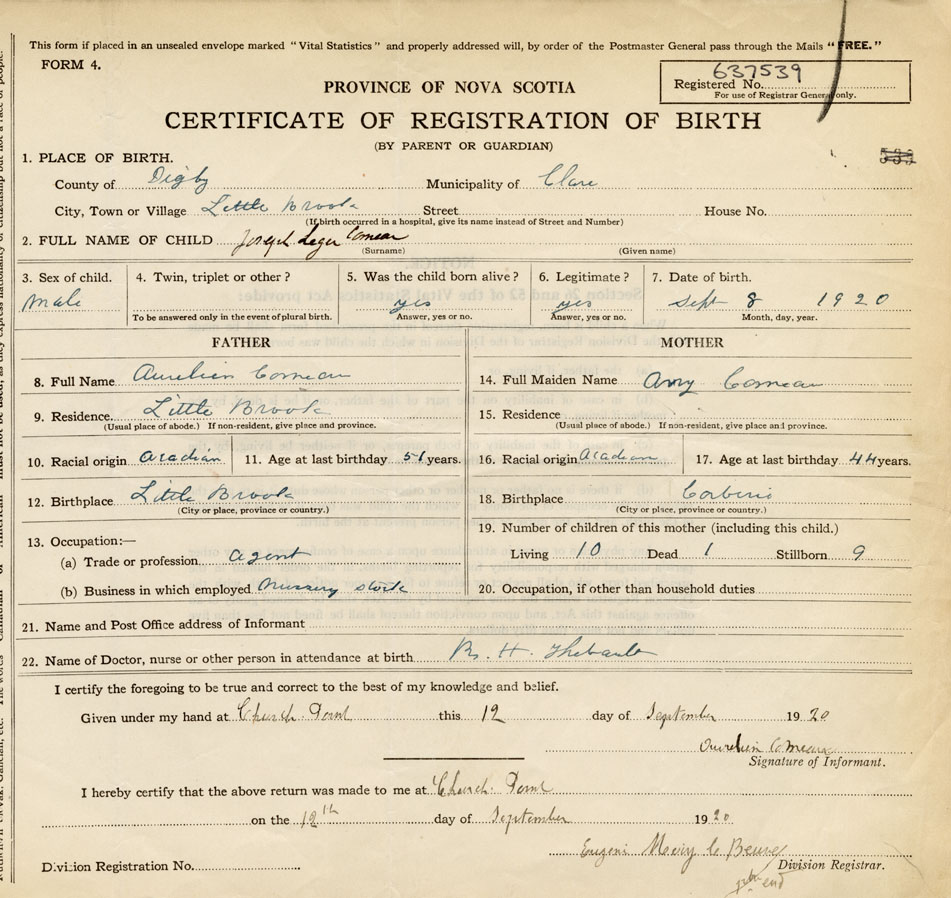 This form if placed in an unsealed envelope marked "Vital Statistics" and properly addressed will, by order of the Postmaster General pass through the Mails "FREE."
FORM 4.
637539
Registered No.
For use of Registrar General only.
PROVINCE OF NOVA SCOTIA
CERTIFICATE OF REGISTRATION OF BIRTH
(BY PARENT OR GUARDIAN)
1. PLACE OF BIRTH.
County of Digby Municipality of Clare
City, Town or Village Little Brook Street House No.
(If birth occurred in a hospital, give its name instead of Street and Number)
2. FULL NAME OF CHILD Joseph Leger Comeau
(Surname) (Given name)
3. Sex of child. 4. Twin, triplet or other? 5. Was the child born alive? 6. Legitimate? 7. Date of birth.
Male yes yes Sept 8 1920
To be answered only in the event of plural birth. Answer, yes or no. Answer, yes or no. Month, day, year.
FATHER MOTHER
8. Full Name Aurelien Comeau 14. Full Maiden Name Amy Comeau
9. Residence. Little Brook 15. Residence
(Usual place of abode.) If non-resident, give place and province. (Usual place of abode.) If non-resident, give place and province.
10. Racial origin Acadian 11. Age at last birthday 51 years. 16. Racial origin Acadian 17. Age at last birthday 44 years.
12. Birthplace Little Brook 18. Birthplace
(City or place, province or country.) (City or place, province or country.)
13. Occupation:— 19. Number of children of this mother (including this child.)
(a) Trade or profession. agent Living 10 Dead 1 Stillborn 9
(b) Business in which employed Nursery stock 20. Occupation, if other than household duties
21. Name and Post Office address of Informant
22. Name of Doctor, nurse or other person in attendance at birth H. Thebault
I certify the foregoing to be true and correct to the best of my knowledge and belief.
Given under my hand at Church Point this 12 day of September 1920
Aurelien Comeau
Signature of Informant.
I hereby certify that the above return was made to me at Church Point
on the 12th day of September 1920
Division Registration No. Division Registrar.